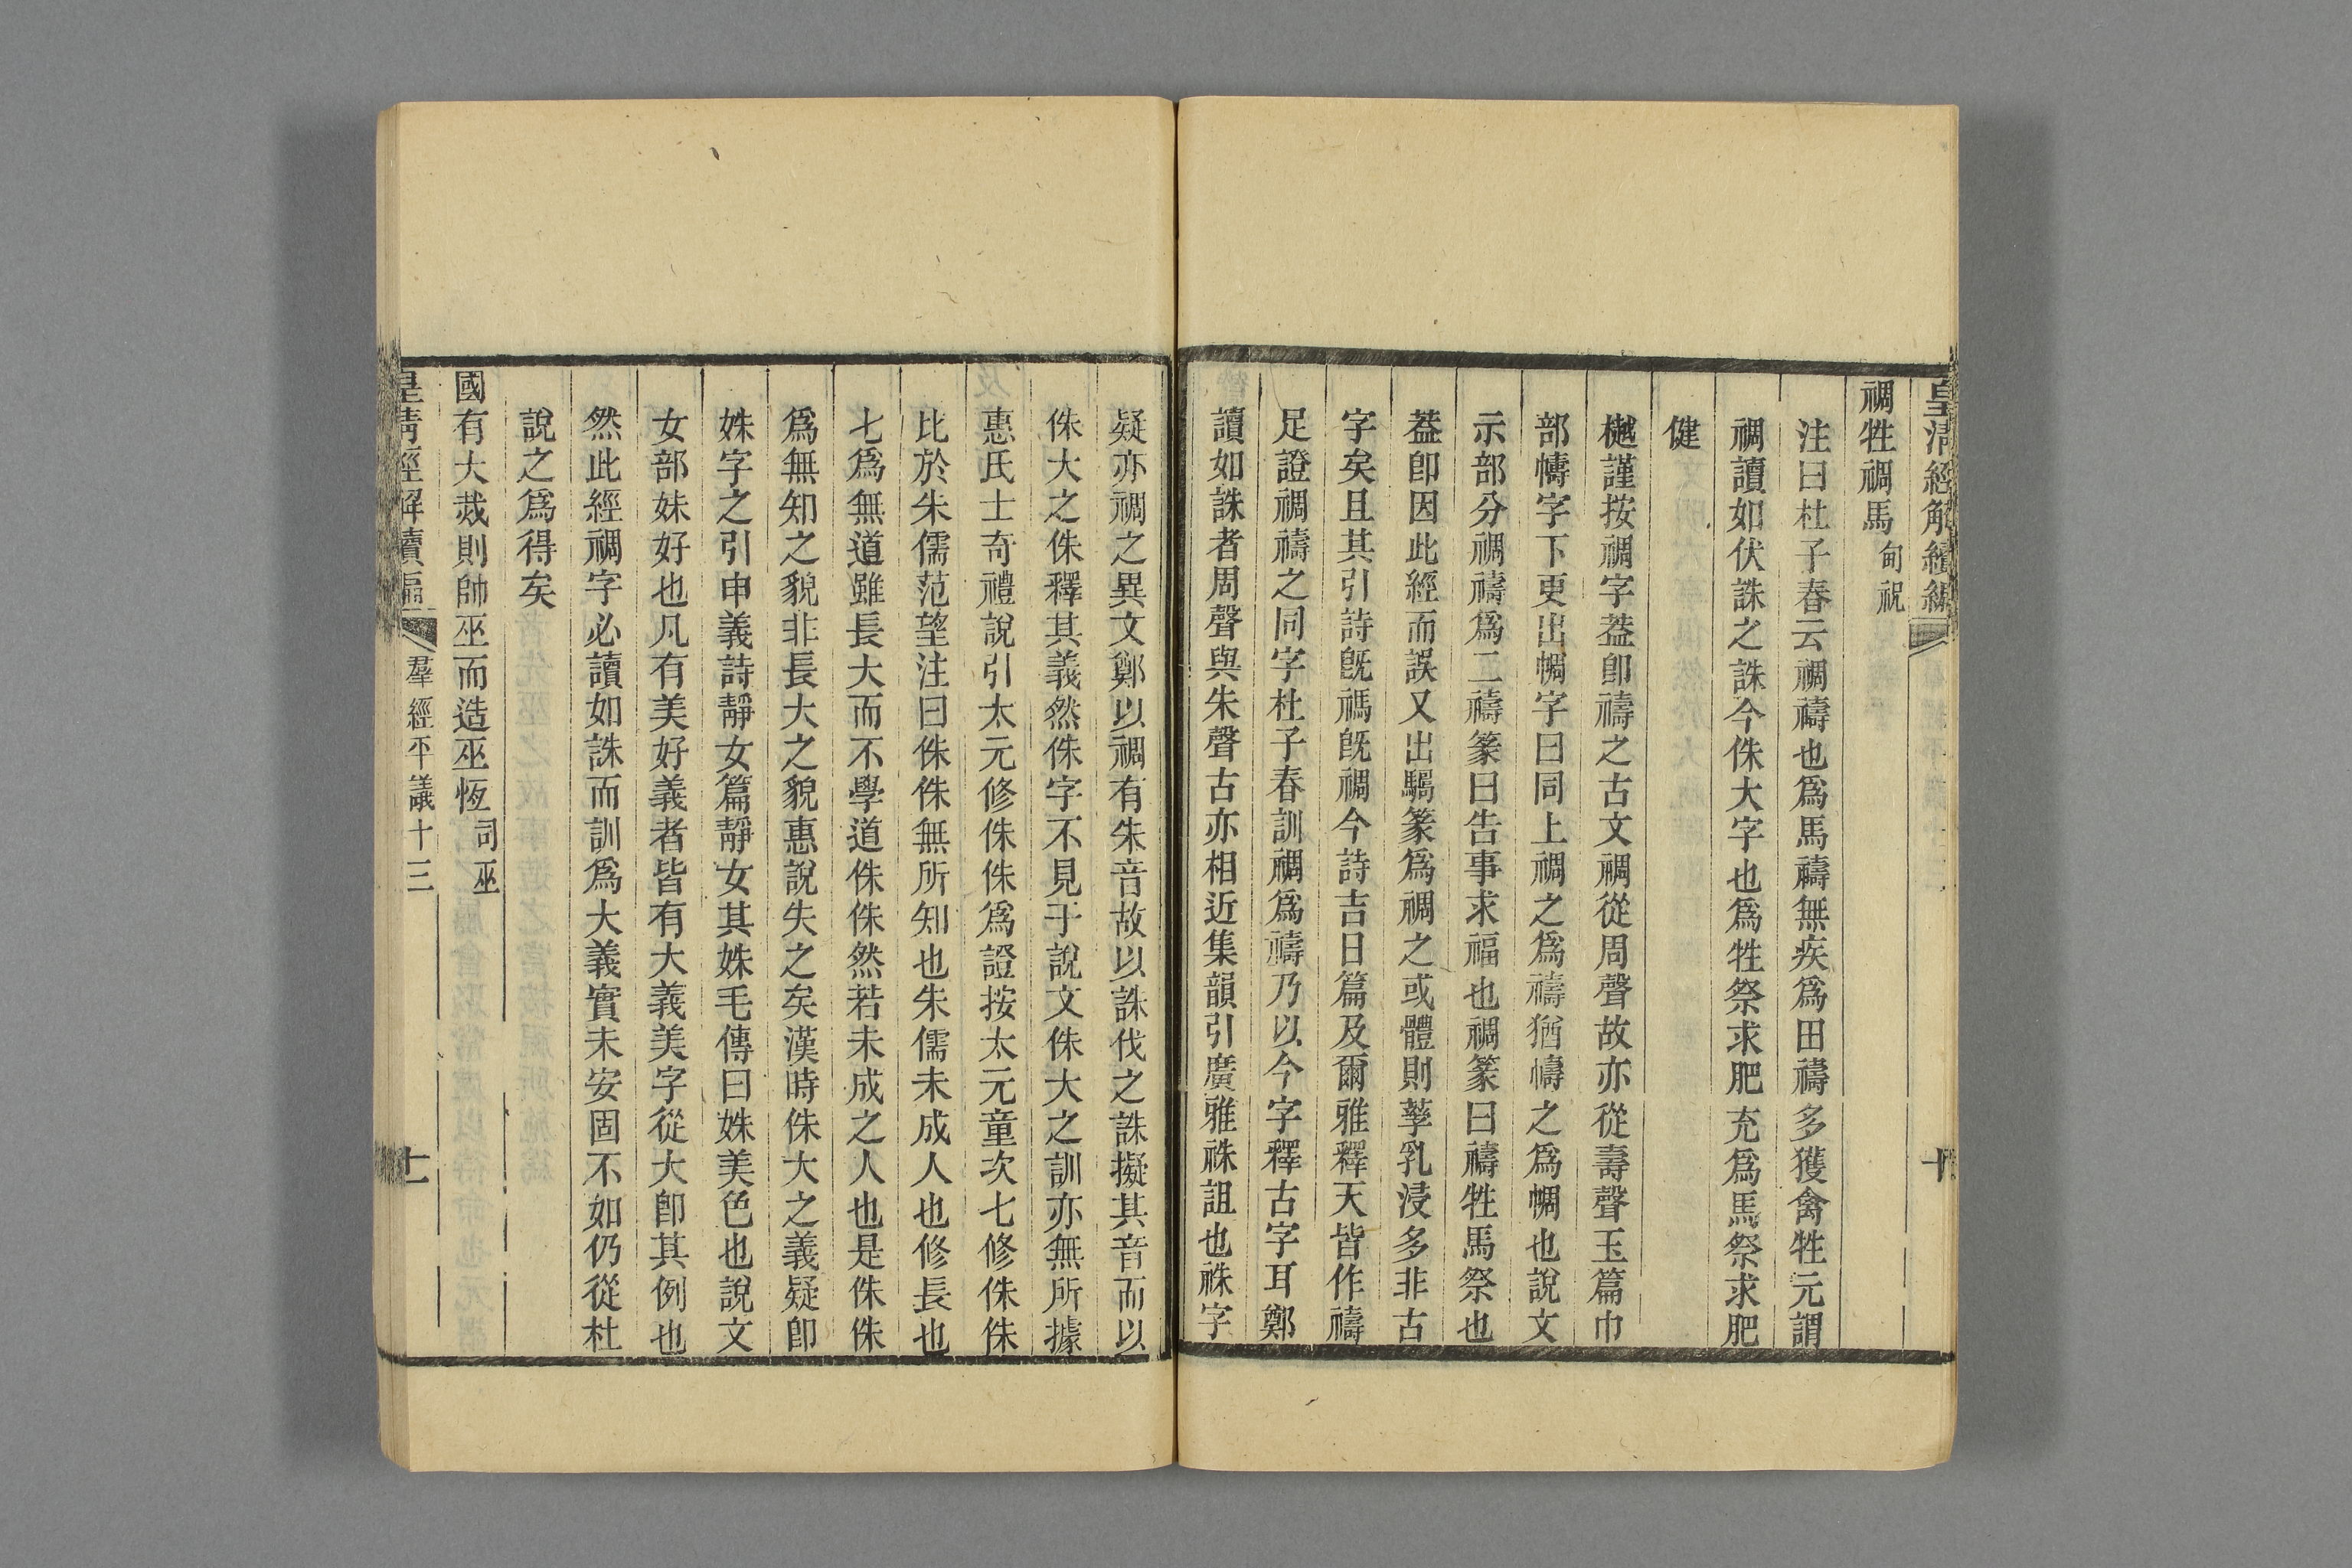 皇清經解續編
禂牲禂馬甸祝
注曰杜子春云禂禱也爲馬禱無疾爲田禱多獲禽牲元謂
禂讀如伏誅之誅今侏大字也爲牲祭求肥充爲馬祭求肥
健
樾謹按禂字葢卽禱之古文禂從周聲故亦從壽聲玉篇巾
部幬字下更出㡏字曰同上禂之爲禱猶幬之爲㡏也說文
示部分禂禱爲二禱篆曰告事求福也禂篆曰禱牲馬祭也
葢卽因此經而誤又出騳篆爲禂之或體則孳乳浸多非古
字矣且其引詩旣禡旣禂今詩吉日篇及爾雅釋天皆作禱
足證禂禱之同字杜子春訓禂爲禱乃以今字釋古字耳鄭
讀如誅者周聲與朱聲古亦相近集韻引廣雅祩詛也祩字
疑亦禂之異文鄭以禂有朱音故以誅伐之誅擬其音而以
侏大之侏釋其義然侏字不見于說文侏大之訓亦無所據
惠氏士奇禮說引太元修侏侏爲證按太元童次七修侏侏
比於朱儒范望注曰侏侏無所知也朱儒未成人也修長也
七爲無道雖長大而不學道侏侏然若未成之人也是侏侏
爲無知之貌非長大之貌惠說失之矣漢時侏大之義疑卽
姝字之引申義詩靜女篇靜女其姝毛傳曰姝美色也說文
女部姝好也凡有美好義者皆有大義美字從大卽其例也
然此經禂字必讀如誅而訓爲大義實未安固不如仍從杜
說之爲得矣
國有大烖則帥巫而造巫恆司巫
皇清經解續編 羣經平議十三 十一